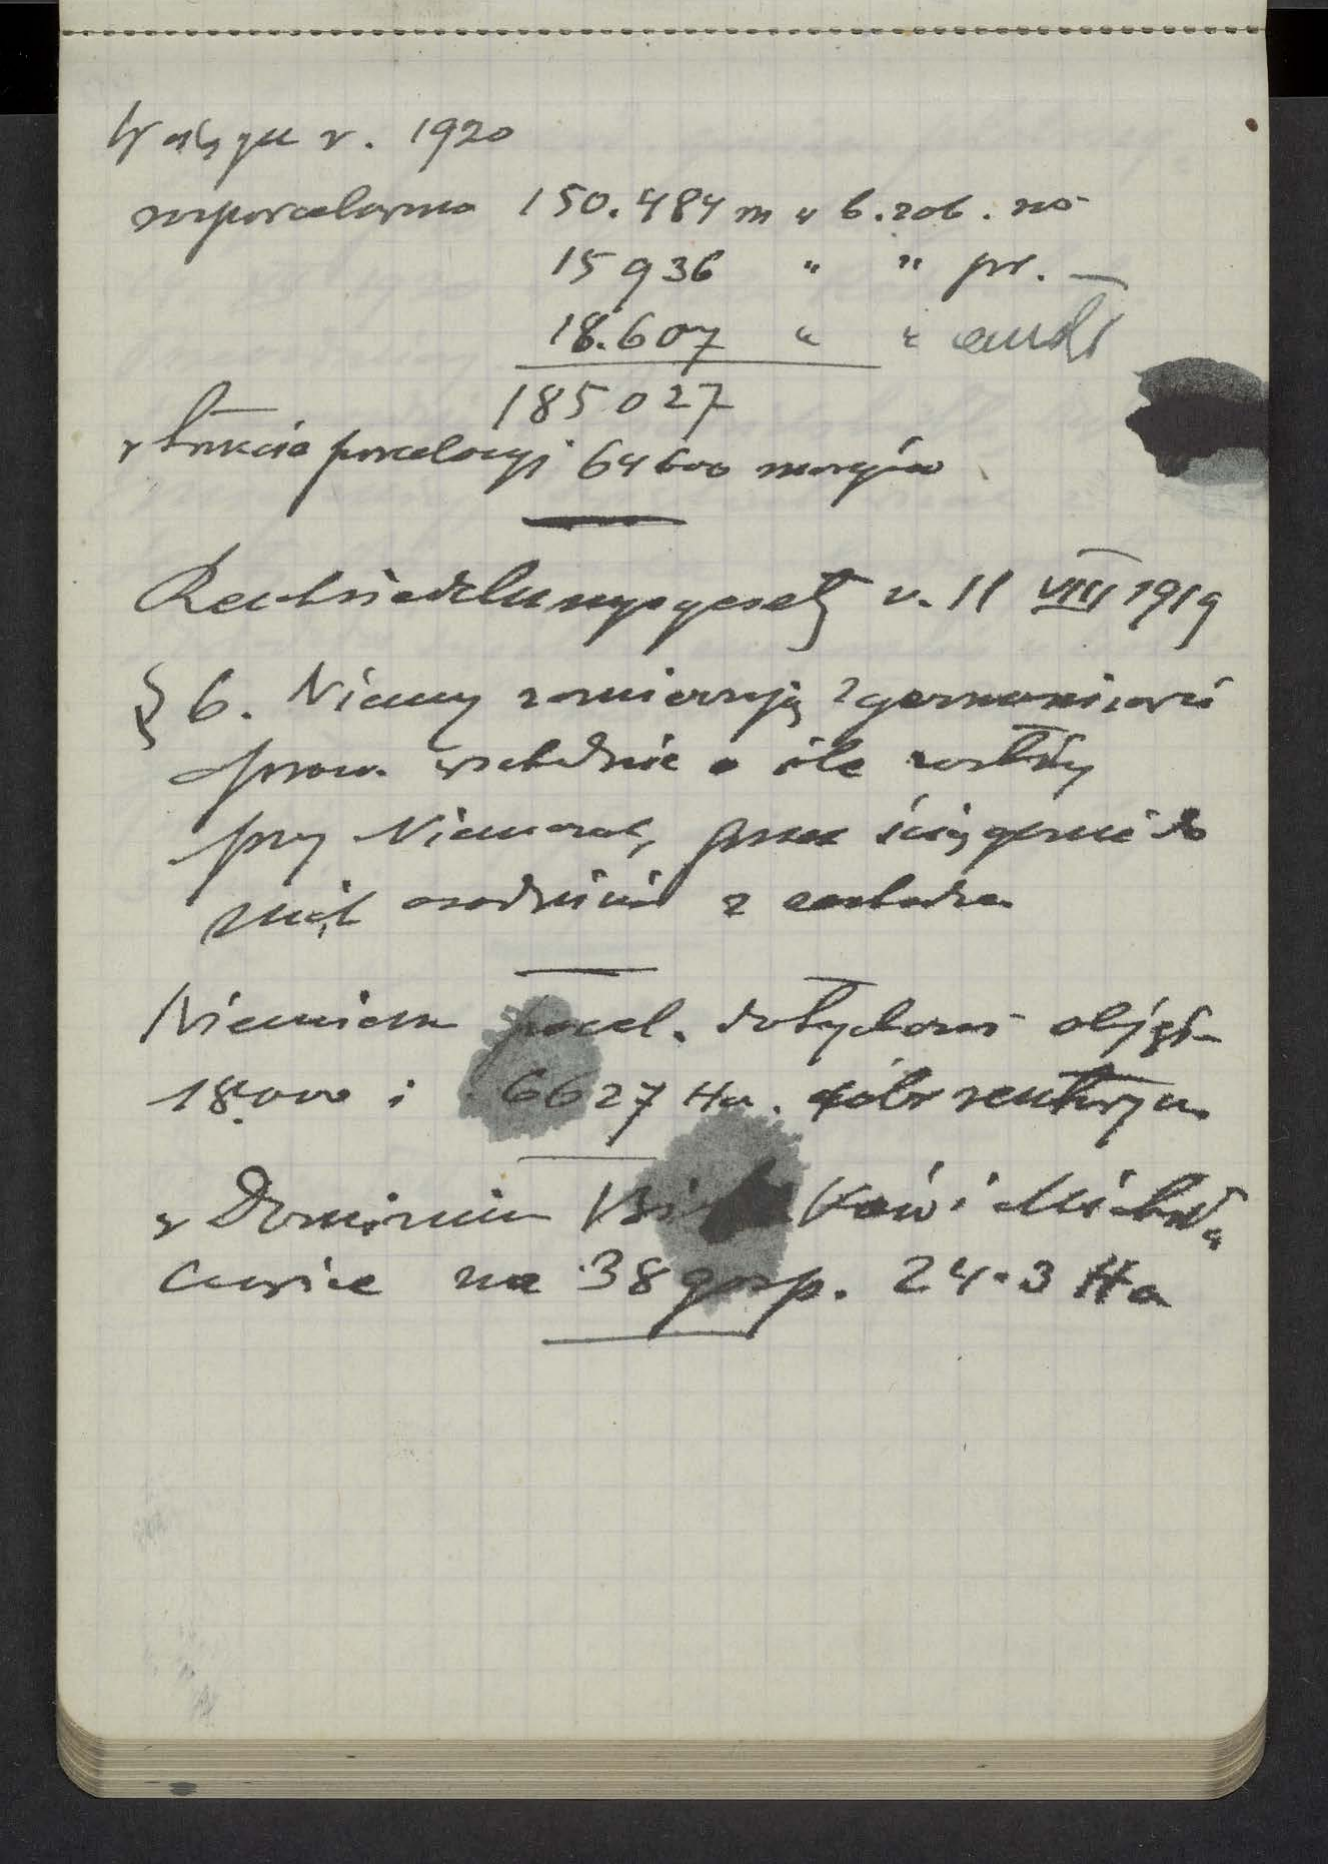 W ciągu r. 1920
rozparcelowano 150.484 m w b. zab. ros
15 936 " " pr. —
18.607 " " austr
185 027
w trakcie parcelacyi 64 600 morgów
Reichsiedelungsgesetz v. 11 VIII 1919
§ 6. Niemcy zamierzają zgermanizować
prow. wschodnie o ile zostały
przy Niemcach, przez ściągnięcie do
nich osadników z zachodu
Niemiecka parcel. dotychczas objęła
18.000 i 6627 Ha. dóbr rentowych
w Dominium i Michał
cowice na 38 gosp. 24.3 Ha